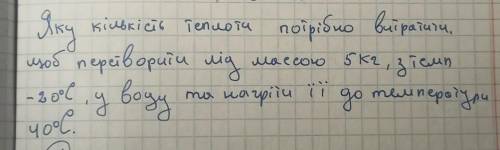 Яку кількість теплоти потрібно витратити,
щоб перетворити лід массою 5кг, з темп
-20°С, у воду та нагріти її до температури
40°С.